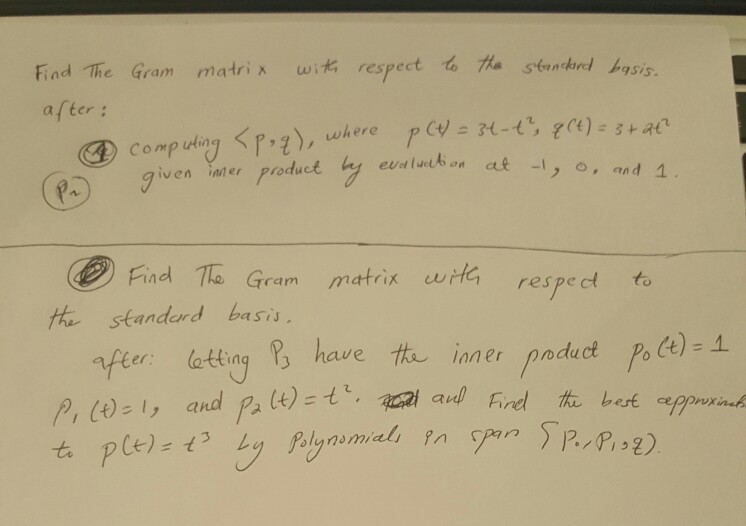 Find The Gram matrix with respect to the standard basis.
after:
computing <p,q), where p(t) = 3t-t², q(t) = 3+2t²
given inner product by evaluation at -1, 0, and 1.
P₂
Find The Gram matrix with respect to
the standard basis.
after: letting P₃ have the inner product p₀(t) = 1
P₁(t)=1, and p₂(t)=t². and Find the best approximate
to p(t) = t³ by Polynomials in span {P₀,P₁,q).